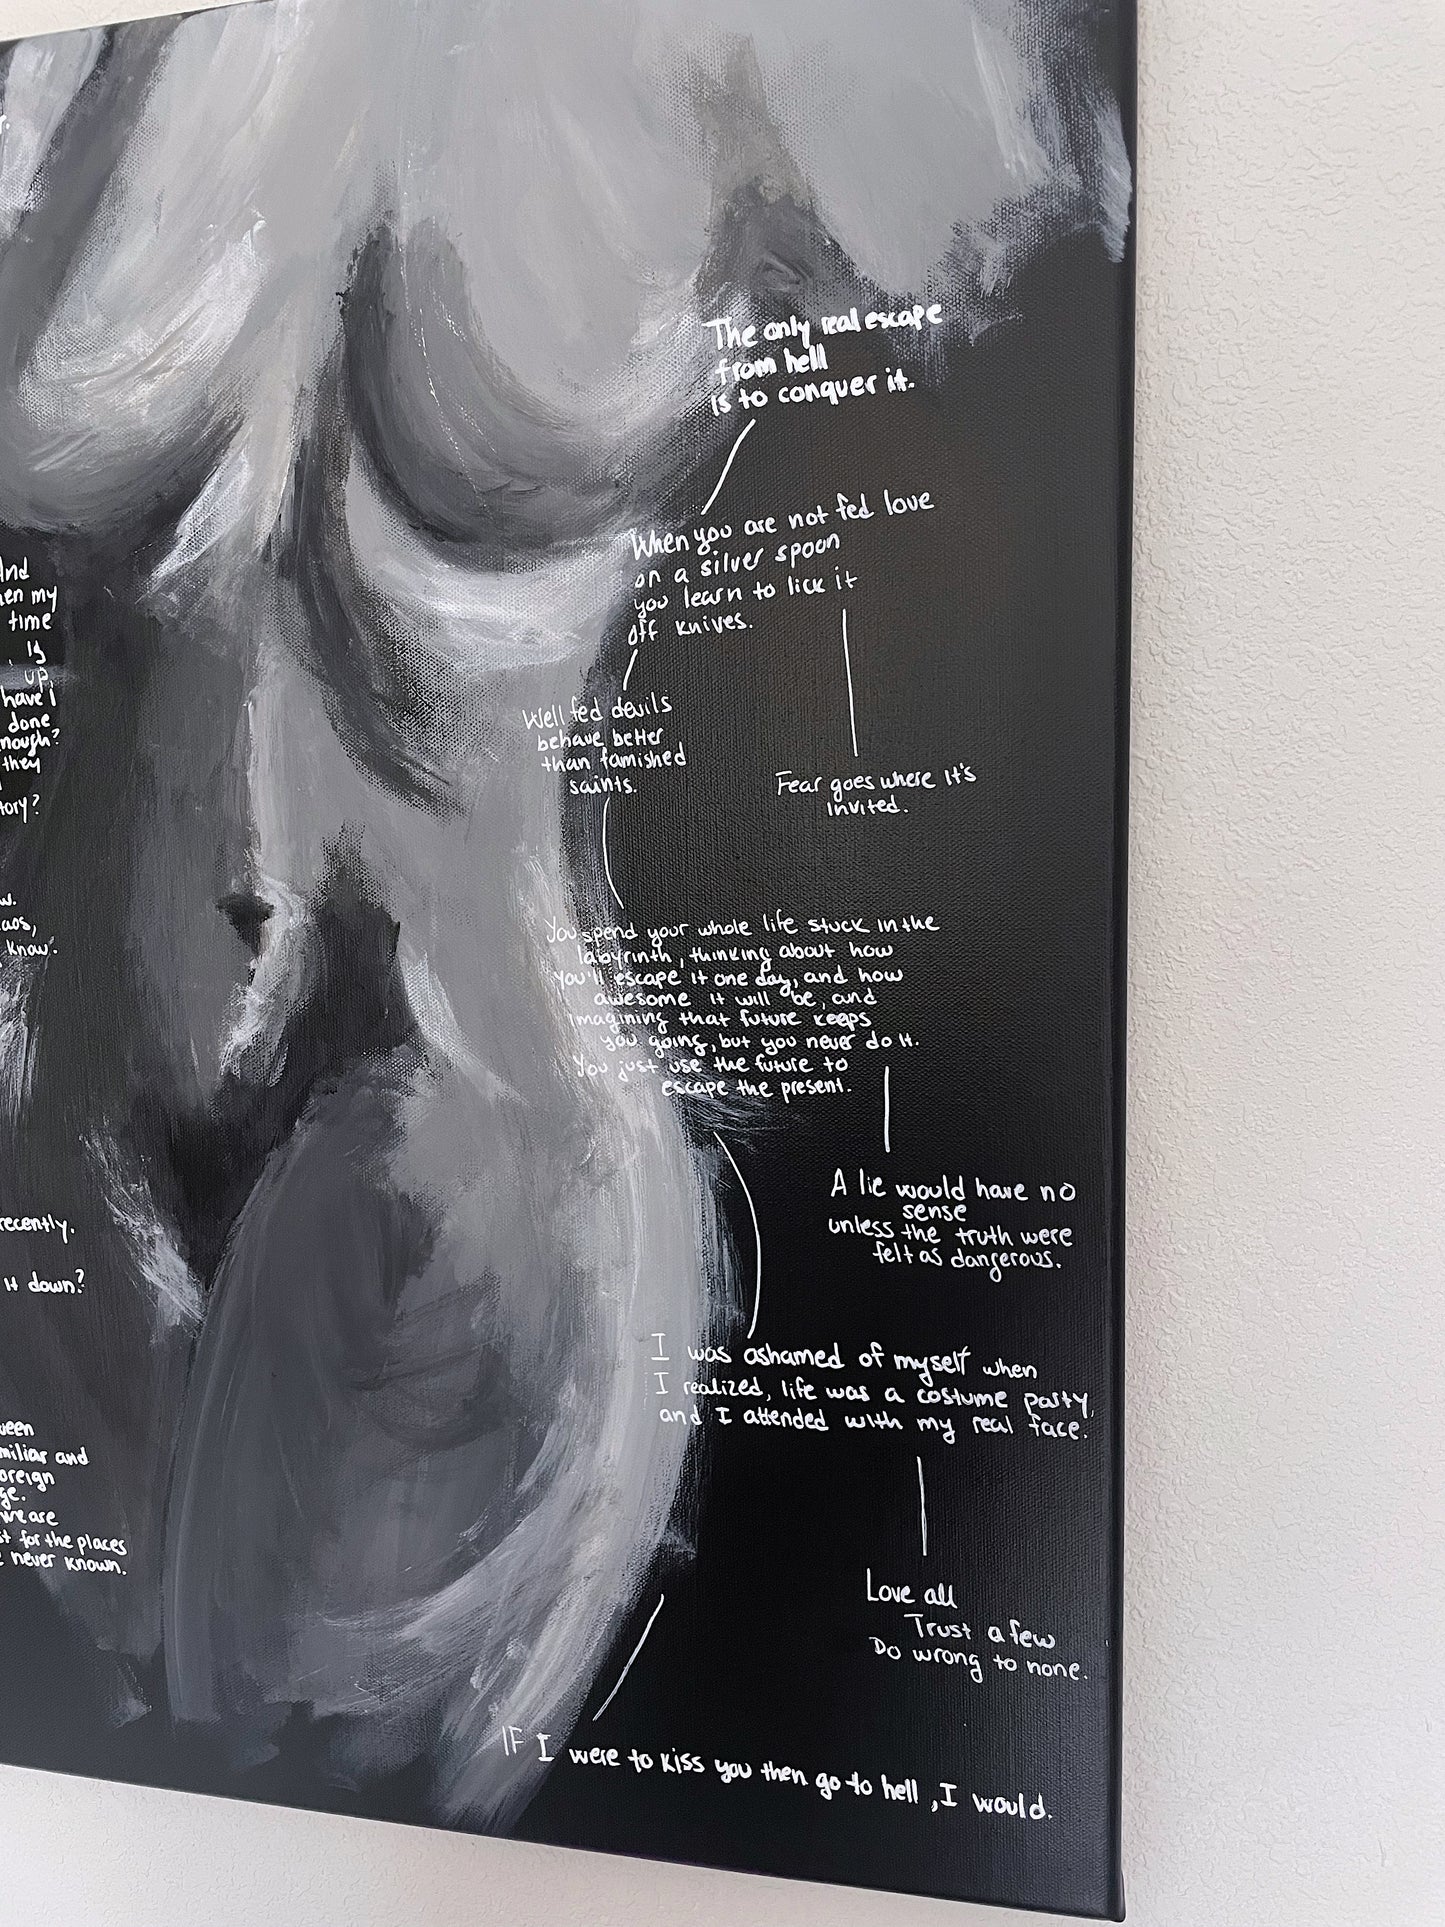 r.
And
en my
time
is
up,
have I
done
nough?
they
tory?
w.
aos,
know.
recently.
it down?
ween
miliar and
oreign
ge.
we are
st for the places
e never known.
The only real escape
from hell
is to conquer it.
When you are not fed love
on a silver spoon
you learn to lick it
off knives.
Well fed devils
behave better
than famished
saints.
Fear goes where it's
invited.
You spend your whole life stuck in the
labyrinth, thinking about how
you'll escape it one day, and how
awesome it will be, and
imagining that future keeps
you going, but you never do it.
You just use the future to
escape the present.
A lie would have no
sense
unless the truth were
felt as dangerous.
I was ashamed of myself when
I realized, life was a costume party,
and I attended with my real face.
Love all
Trust a few
Do wrong to none.
IF I were to kiss you then go to hell, I would.